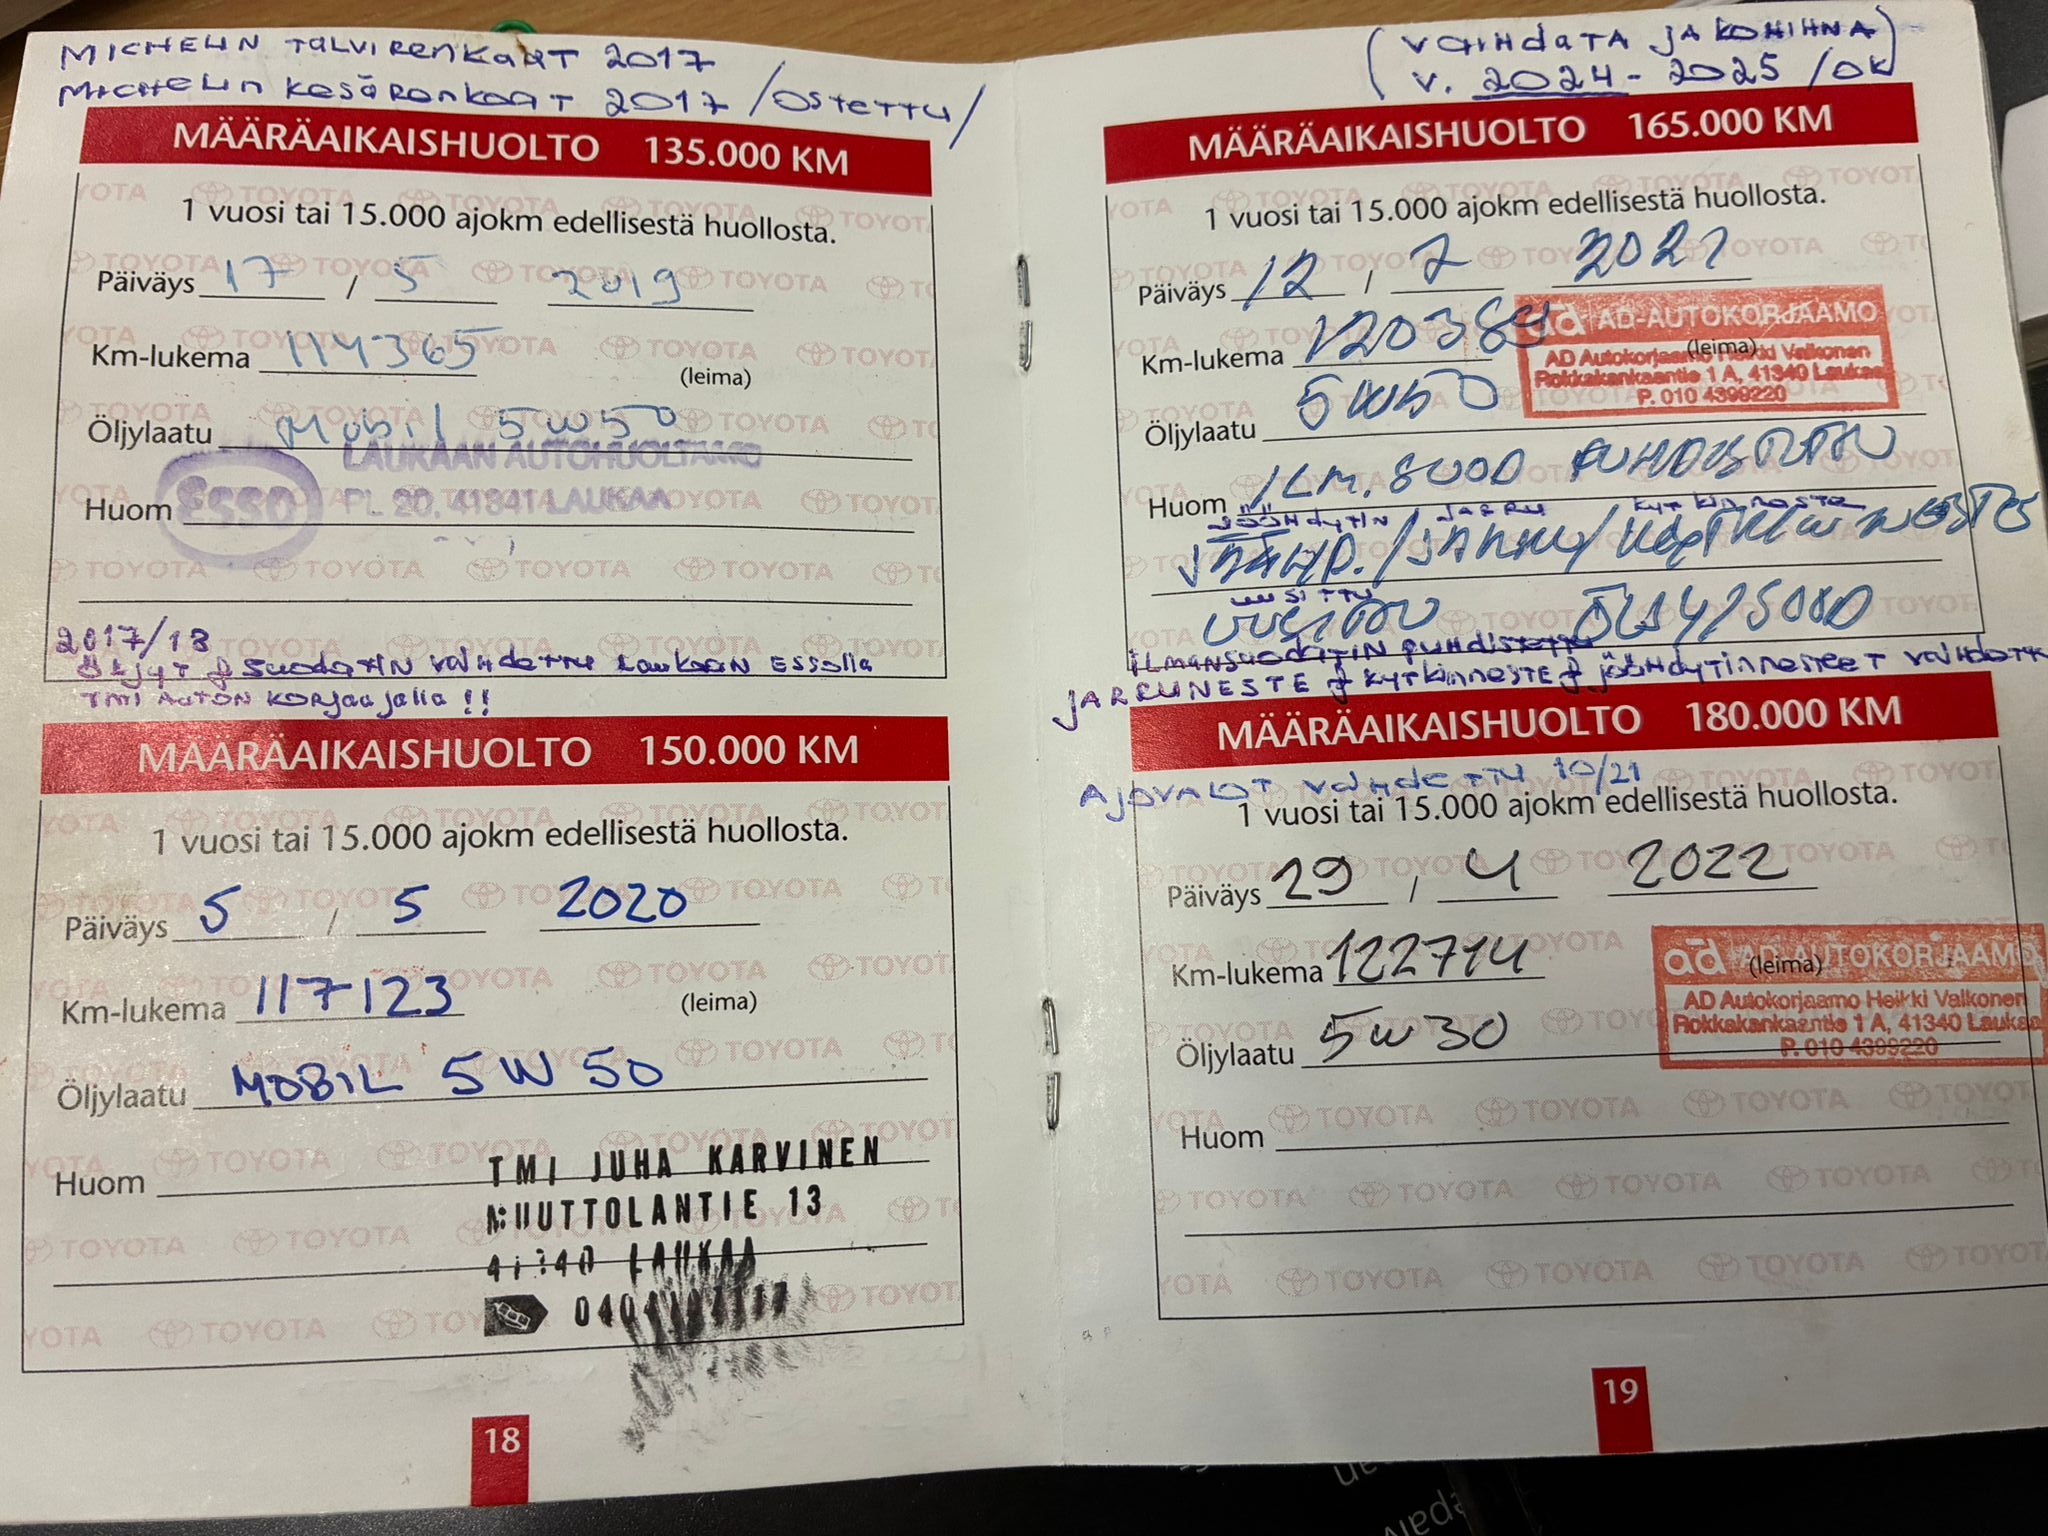 MICHELIN TALVIRENKAAT 2017
MICHELIN KESÄRENKAAT 2017 /OSTETTU/
MÄÄRÄAIKAISHUOLTO 135.000 KM
1 vuosi tai 15.000 ajokm edellisestä huollosta.
Päiväys 17 / 5 2019
Km-lukema 114365
(leima)
Öljylaatu Mobil 5W50
LAUKAAN AUTOHUOLTAMO
Huom ESSO PL 20, 41341 LAUKAA
2017/18
ÖLJYT & SUODATIN VAIHDETTU LAUKAAN ESSOLLA
TMI AUTON KORJAAJALLA !!
MÄÄRÄAIKAISHUOLTO 150.000 KM
1 vuosi tai 15.000 ajokm edellisestä huollosta.
Päiväys 5 / 5 2020
Km-lukema 117123
(leima)
Öljylaatu MOBIL 5W50
Huom
TMI JUHA KARVINEN
13
LAUKAA
18
(VAIHDATA JAKOHIHNA)
V. 2024-2025 /OK
MÄÄRÄAIKAISHUOLTO 165.000 KM
1 vuosi tai 15.000 ajokm edellisestä huollosta.
Päiväys 12 / 7 2021
Km-lukema 120384
ad AD-AUTOKORJAAMO
(leima)
AD Autokorjaamo Heikki Valkonen
Rokkakankaantie 1 A, 41340 Laukaa
P. 010 4399220
Öljylaatu 5W50
Huom ILM. SUOD PUHDISTETTU
JÄÄHDYTIN JARRU KYTKINNESTE
JÄÄHD./JARRU/KYTKINNESTE
UUSITTU
UUSITTU ÖLJY/SUOD
ILMANSUODATIN PUHDISTETTU
JARRUNESTE & KYTKINNESTE & JÄÄHDYTINNESTEET VAIHDETTU
MÄÄRÄAIKAISHUOLTO 180.000 KM
AJOVALOT VAIHDETTU 10/21
1 vuosi tai 15.000 ajokm edellisestä huollosta.
Päiväys 29 / 4 2022
Km-lukema 122714
ad AD-AUTOKORJAAMO
(leima)
AD Autokorjaamo Heikki Valkonen
Rokkakankaantie 1 A, 41340 Laukaa
P. 010 4399220
Öljylaatu 5W30
Huom
19